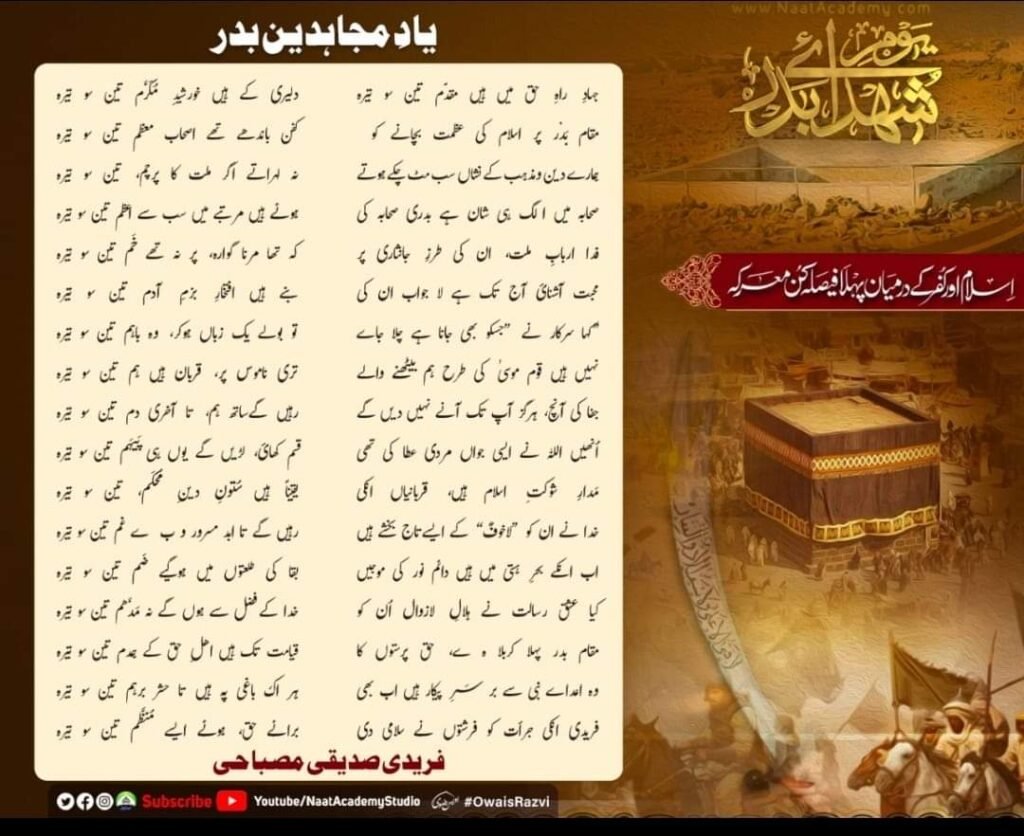 www.NaatAcademy.com
یادِ مجاہدین بدر
یومِ شہدائے بدر
اسلام اور کفر کے درمیان پہلا فیصلہ کن معرکہ
جہادِ راہِ حق میں ہیں مقدّم تین سو تیرہ
دلیری کے ہیں خورشیدِ مُکرَّم تین سو تیرہ
مقام بَدْر پر اسلام کی عظمت بچانے کو
کفن باندھے تھے اصحابِ معظم تین سو تیرہ
ہمارے دین و مذہب کے نشاں سب مٹ چکے ہوتے
نہ لہراتے اگر ملت کا پرچم، تین سو تیرہ
صحابہ میں الگ ہی شان ہے بدری صحابہ کی
ہوئے ہیں مرتبے میں سب سے اعظم تین سو تیرہ
فدا اربابِ ملت، ان کی طرزِ جانثاری پر
کہ تھا مرنا گوارہ، پر نہ تھے خَم تین سو تیرہ
محبت آشنائی آج تک ہے لا جواب ان کی
بنے ہیں افتخارِ بزمِ آدم تین سو تیرہ
کہا سرکار نے "جسکو بھی جانا ہے چلا جاے
تو بولے یک زباں ہوکر، وہ باہم تین سو تیرہ
نہیں ہیں قوم موسیٰ کی طرح ہم بیٹھنے والے
تری ناموس پر، قربان ہیں ہم تین سو تیرہ
جفا کی آنچ، ہرگز آپ تک آنے نہیں دیں گے
رہیں گے ساتھ ہم، تا آخری دم تین سو تیرہ
اُنھیں اللہ نے ایسی جواں مردی عطا کی تھی
قسم کھائی، لڑیں گے یوں ہی پَیہَم تین سو تیرہ
مَدارِ شوکتِ اسلام ہیں، قربانیاں انکی
یقیناً ہیں سُتونِ دینِ مُحکَم، تین سو تیرہ
خدا نے ان کو "لاخوفٌ" کے ایسے تاج بخشے ہیں
رہیں گے تا ابد مسرور و بے غم تین سو تیرہ
اب انکے بحرِ ہستی میں ہیں دائم نور کی موجیں
بقا کی طلعتوں میں ہوگیے ضَم تین سو تیرہ
کیا عشقِ رسالت نے ہلالِ لازوال اُن کو
خدا کے فضل سے ہوں گے نہ مَدّھم تین سو تیرہ
مقام بدر پہلا کربلا ہے، حق پرستوں کا
قیامت تک ہیں اھلِ حق کے ہمدم تین سو تیرہ
وہ اعداے نبی سے بر سَرِ پیکار ہیں اب بھی
ہر اک باغی پہ ہیں تا حشر برہم تین سو تیرہ
فریدی انکی جرأت کو فرشتوں نے سلامی دی
براے حق، ہوئے ایسے مُنَظَّم تین سو تیرہ
فریدی صدیقی مصباحی
Subscribe Youtube/NaatAcademyStudio #OwaisRazvi